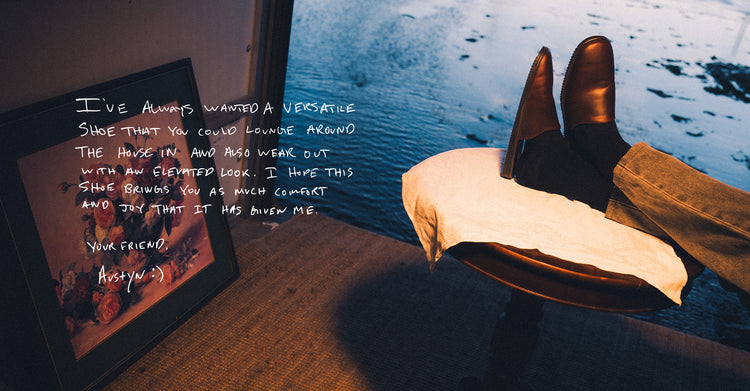 I've Always wanted a versatile
shoe that you could lounge around
the house in and also wear out
with an elevated look. I hope this
shoe brings you as much comfort
and joy that it has given me.
your friend,
Austyn :)